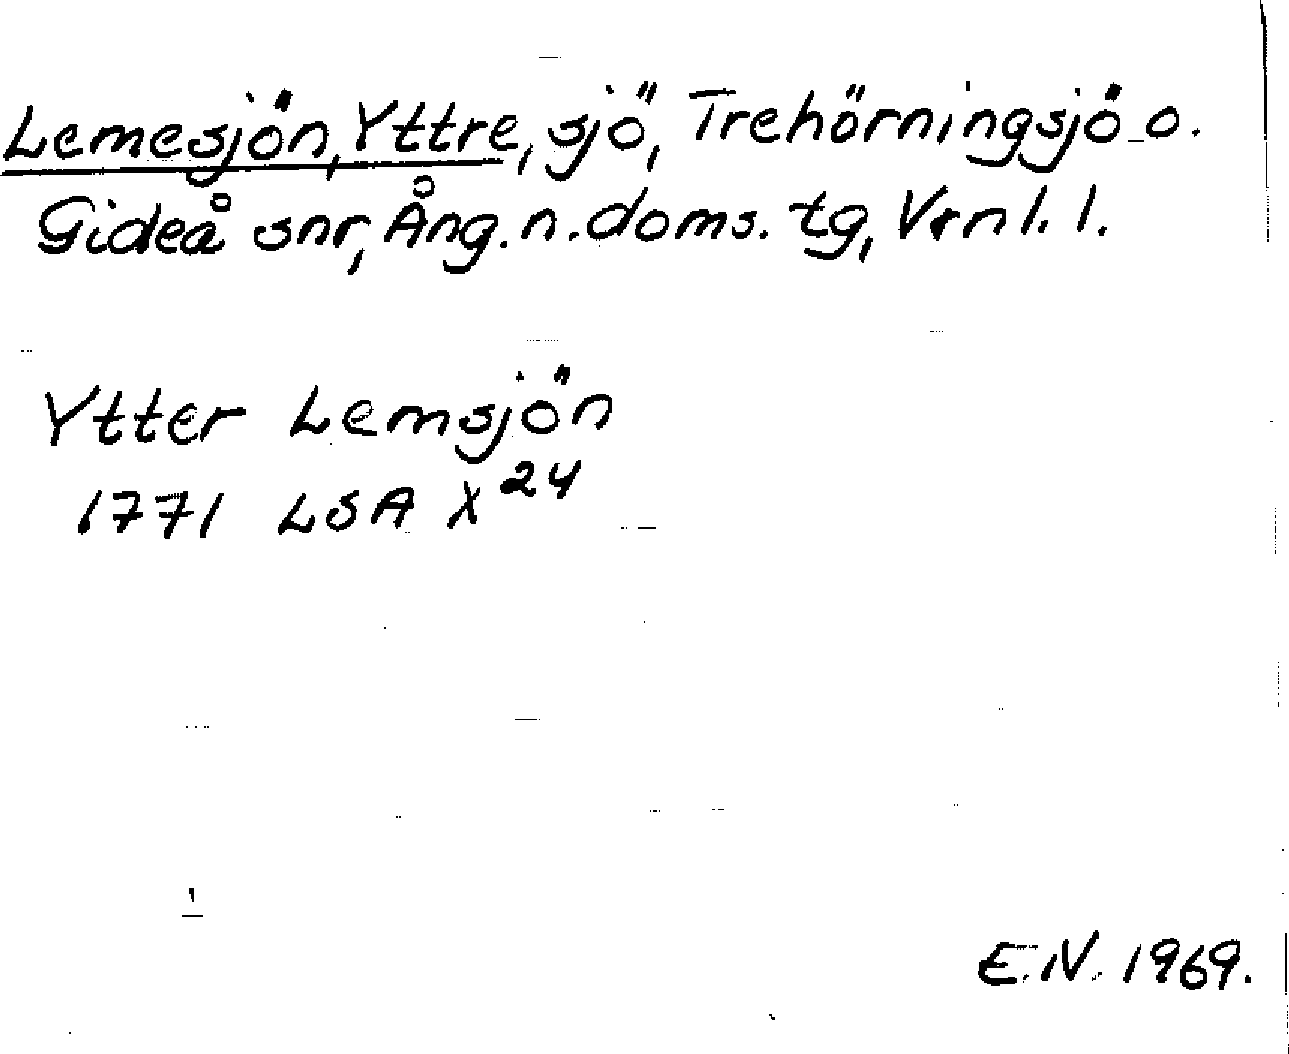 Lemesjön, Yttre, sjö, Trehörningsjö o.
Gideå snr, Ång. n. doms. tg, Vrnl. l.
Ytter Lemsjön
1771 LSA X 24
E.N. 1969.